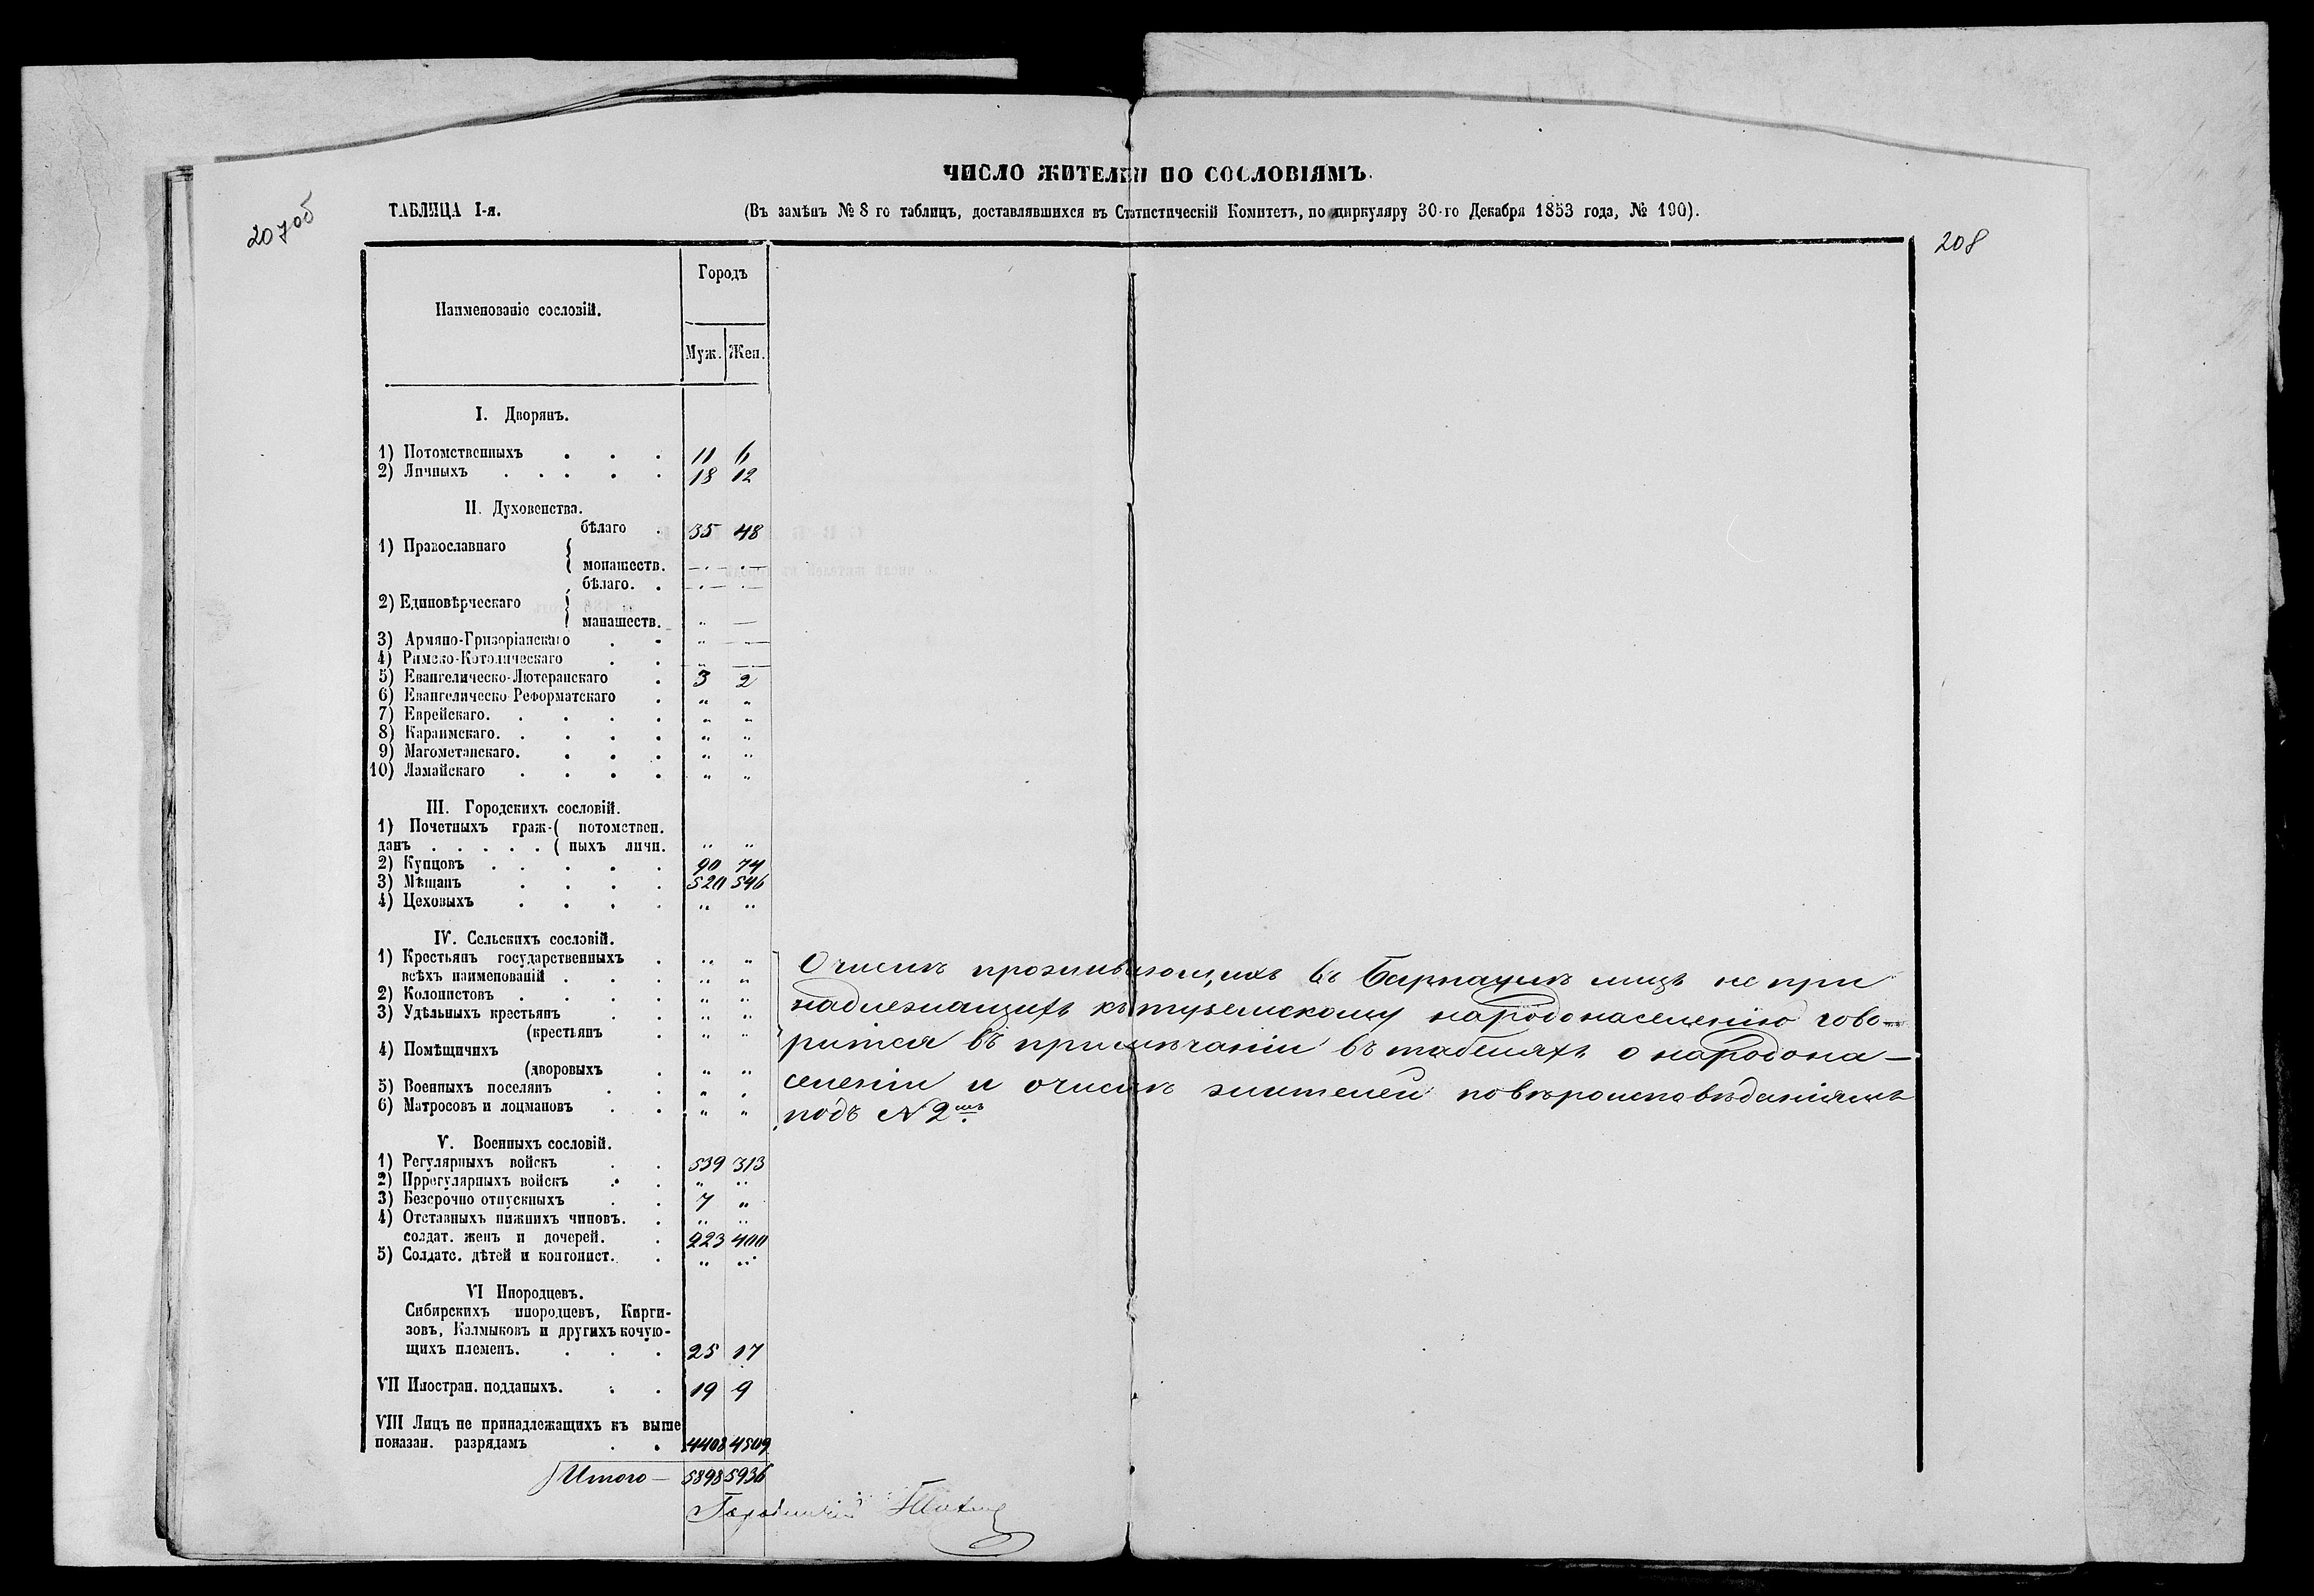 ЧИСЛО ЖИТЕЛЕЙ ПО СОСЛОВІЯМЪ.
207об
ТАБЛИЦА I-я.
(Въ замѣнъ № 8 го таблицъ, доставлявшихся въ Статистическій Комитетъ, по циркуляру 30-го Декабря 1853 года, № 190).
208
Наименованіе сословій.
Городъ
Муж. Жен.
I. Дворянъ.
1) Потомственныхъ . . . 11 6
2) Личныхъ . . . . . 18 12
II. Духовенства.
бѣлаго . 35 48
1) Православнаго {
монашеств. — —
бѣлаго. . — —
2) Единовѣрческаго {
манашеств. „ —
3) Армяно-Григоріанскаго . . „ —
4) Римско-Католическаго . . „ —
5) Евангелическо-Лютеранскаго . 3 2
6) Евангелическо Реформатскаго . „ „
7) Еврейскаго. . . . . „ „
8) Караимскаго. . . . . „ „
9) Магометанскаго. . . . „ „
10) Ламайскаго . . . . „ „
III. Городскихъ сословій.
1) Почетныхъ граж-( потомствен.
данъ . . . . . ( ныхъ личн. „ „
2) Купцовъ . . . . . 90 74
3) Мѣщанъ . . . . 520 546
4) Цеховыхъ . . . . „ „
IV. Сельскихъ сословій.
1) Крестьянъ государственныхъ . „ „
всѣхъ наименованій . . . „ „
2) Колонистовъ . . . . „ „
3) Удѣльныхъ крестьянъ . . „ „
(крестьянъ . „ „
4) Помѣщичихъ
(дворовыхъ . „ „
5) Военныхъ поселянъ . . „ „
6) Матросовъ и лоцмановъ . . „ „
О числѣ проживающихъ въ Барнаулѣ лицъ не при
надлежащихъ къ туземскому народонаселенію гово-
рится въ примѣчаніи въ табеляхъ о народона-
селеніи и о числѣ жителей по вѣроисповѣданіямъ
подъ N 2мъ.
V. Военныхъ сословій.
1) Регулярныхъ войскъ . . 539 313
2) Иррегулярныхъ войскъ . . „ „
3) Безсрочно отпускныхъ . . 7 „
4) Отставныхъ нижнихъ чиновъ. . „ „
солдат. женъ и дочерей. . 223 400
5) Солдатс. дѣтей и контонист. . „ „
VI Инородцевъ.
Сибирскихъ инородцевъ, Кирги-
зовъ, Калмыковъ и другихъ кочую-
щихъ племенъ. . . . 25 17
VII Иностран. подданыхъ. . . 19 9
VIII Лицъ не принадлежащихъ къ выше
показан. разрядамъ . . 4408 4509
Итого — 5898 5936
Городничій